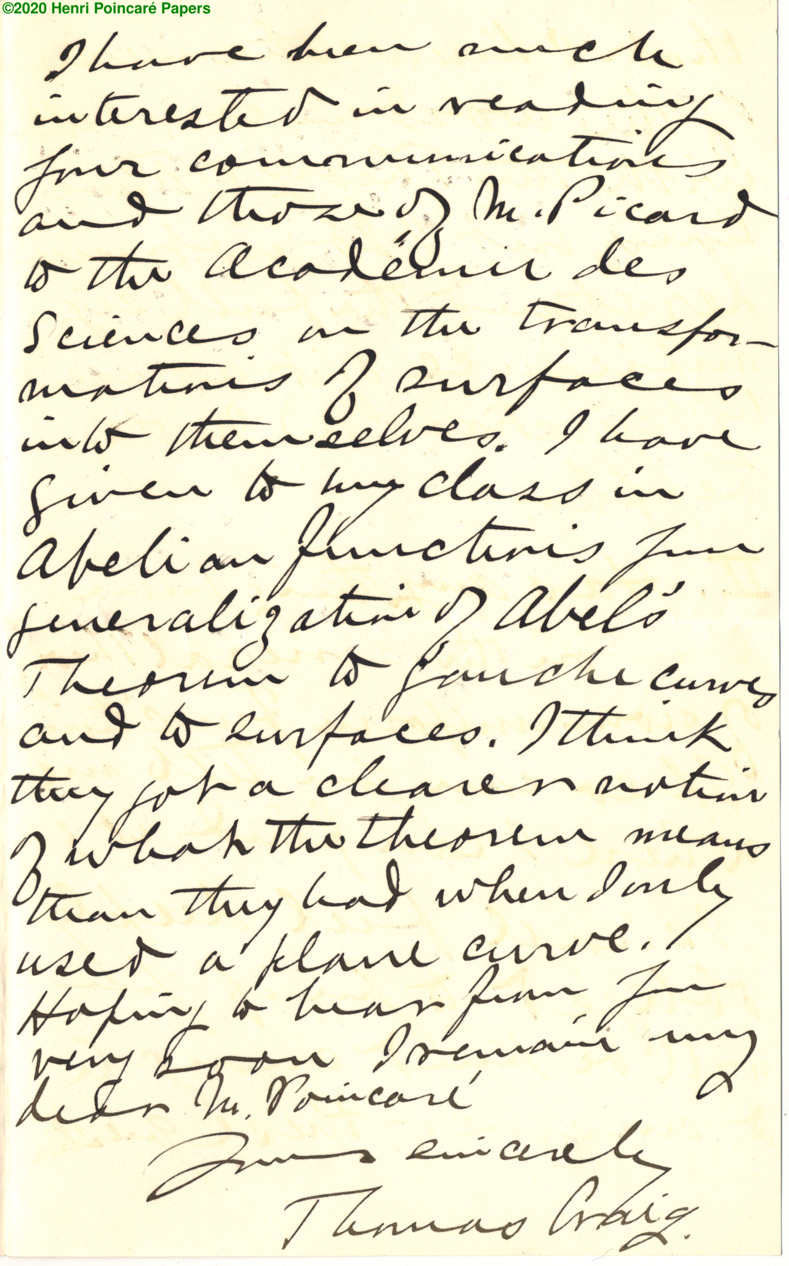 ©2020 Henri Poincaré Papers
I have been much
interested in reading
your communications
and those of M. Picard
to the Académie des
Sciences on the transfor-
mations of surfaces
into themselves. I have
given to my class in
Abelian functions your
generalization of Abel's
Theorem to gauche curves
and to surfaces. I think
they got a clearer notion
of what the theorem means
than they had when I only
used a plane curve.
Hoping to hear from you
very soon I remain my
dear M. Poincaré
Yours sincerely
Thomas Craig.